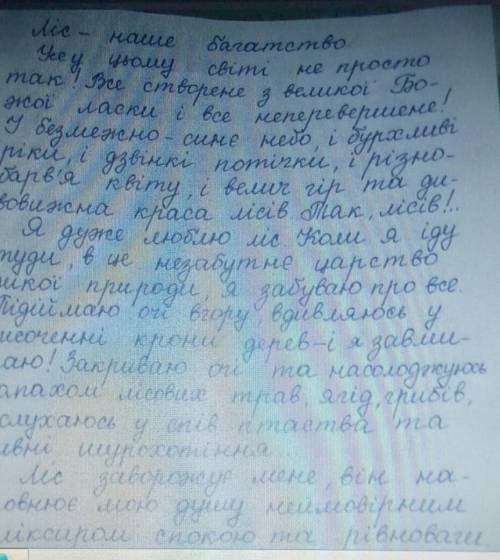 Ліс - наше багатство.
Усе у цьому світі не просто
так! Все створене з великої Бо-
жої ласки і все неперевершене!
І безмежно-синє небо, і бурхливі
ріки, і дзвінкі потічки, і різно-
барв'я квіту, і велич гір та ди-
вовижна краса лісів. Так, лісів!..
Я дуже люблю ліс. Коли я іду
туди, в це незабутнє царство
икої природи, я забуваю про все.
Підіймаю очі вгору, вдивляюсь у
исоченні крони дерев - і я завми-
аю! Закриваю очі та насолоджуюсь
апахом лісових трав, ягід, грибів,
слухаюсь у спів птаства та
ивні шурохотіння...
Ліс заворожує мене, він на-
овнює мою душу неймовірним
ліксиром спокою та рівноваги